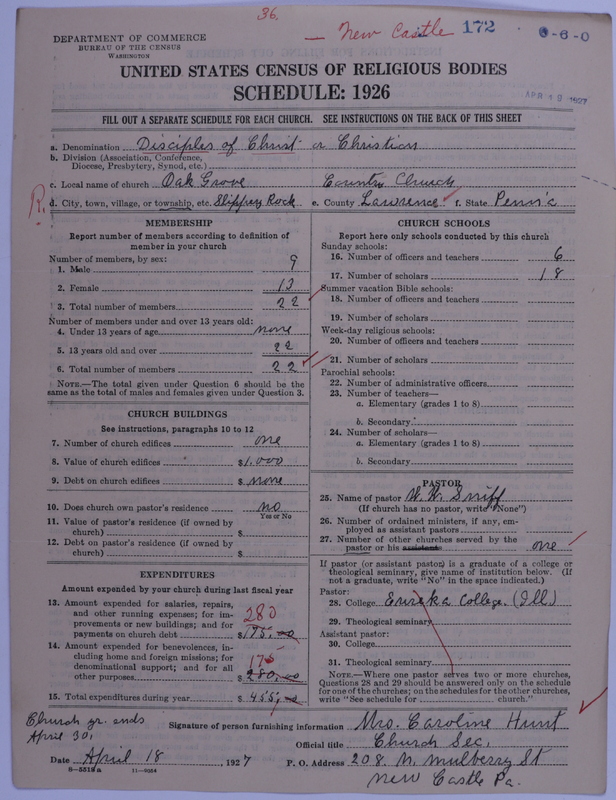 36.
— New Castle 172 0-6-0
DEPARTMENT OF COMMERCE
BUREAU OF THE CENSUS
WASHINGTON
UNITED STATES CENSUS OF RELIGIOUS BODIES
SCHEDULE: 1926
APR 19 1927
FILL OUT A SEPARATE SCHEDULE FOR EACH CHURCH. SEE INSTRUCTIONS ON THE BACK OF THIS SHEET
a. Denomination Disciples of Christ or Christian
b. Division (Association, Conference,
Diocese, Presbytery, Synod, etc.)
c. Local name of church Oak Grove Country Church
R. d. City, town, village, or township, etc. Slippery Rock e. County Lawrence f. State Penn'a
MEMBERSHIP
Report number of members according to definition of
member in your church
Number of members, by sex:
1. Male 9
2. Female 13
3. Total number of members 22
Number of members under and over 13 years old:
4. Under 13 years of age none
5. 13 years old and over 22
6. Total number of members 22
NOTE.—The total given under Question 6 should be the
same as the total of males and females given under Question 3.
CHURCH BUILDINGS
See instructions, paragraphs 10 to 12
7. Number of church edifices one
8. Value of church edifices $1.000
9. Debt on church edifices $ none
10. Does church own pastor's residence no
Yes or No
11. Value of pastor's residence (if owned by
church) $
12. Debt on pastor's residence (if owned by
church) $
EXPENDITURES
Amount expended by your church during last fiscal year
13. Amount expended for salaries, repairs,
and other running expenses; for im-
provements or new buildings; and for 280
payments on church debt $175.00
14. Amount expended for benevolences, in-
cluding home and foreign missions; for
denominational support; and for all 175
other purposes $280.00
15. Total expenditures during year $455.00
CHURCH SCHOOLS
Report here only schools conducted by this church
Sunday schools:
16. Number of officers and teachers 6
17. Number of scholars 18
Summer vacation Bible schools:
18. Number of officers and teachers
19. Number of scholars
Week-day religious schools:
20. Number of officers and teachers
21. Number of scholars
Parochial schools:
22. Number of administrative officers
23. Number of teachers—
a. Elementary (grades 1 to 8)
b. Secondary
24. Number of scholars—
a. Elementary (grades 1 to 8)
b. Secondary
PASTOR
25. Name of pastor W. W. Sniff
(If church has no pastor, write "None")
26. Number of ordained ministers, if any, em-
ployed as assistant pastors
27. Number of other churches served by the
pastor or his assistants one
If pastor (or assistant pastor) is a graduate of a college or
theological seminary, give name of institution below. (If
not a graduate, write "No" in the space indicated.)
Pastor:
28. College Eureka College (Ill)
29. Theological seminary
Assistant pastor:
30. College
31. Theological seminary
NOTE.—Where one pastor serves two or more churches,
Questions 28 and 29 should be answered only on the schedule
for one of the churches; on the schedules for the other churches,
write "See schedule for church."
Church yr. ends
April 30,
Signature of person furnishing information Mrs. Caroline Hunt
Official title Church Sec.
Date April 18, 1927 P. O. Address 208 N. Mulberry St
8—5319a 11—9584 New Castle Pa.